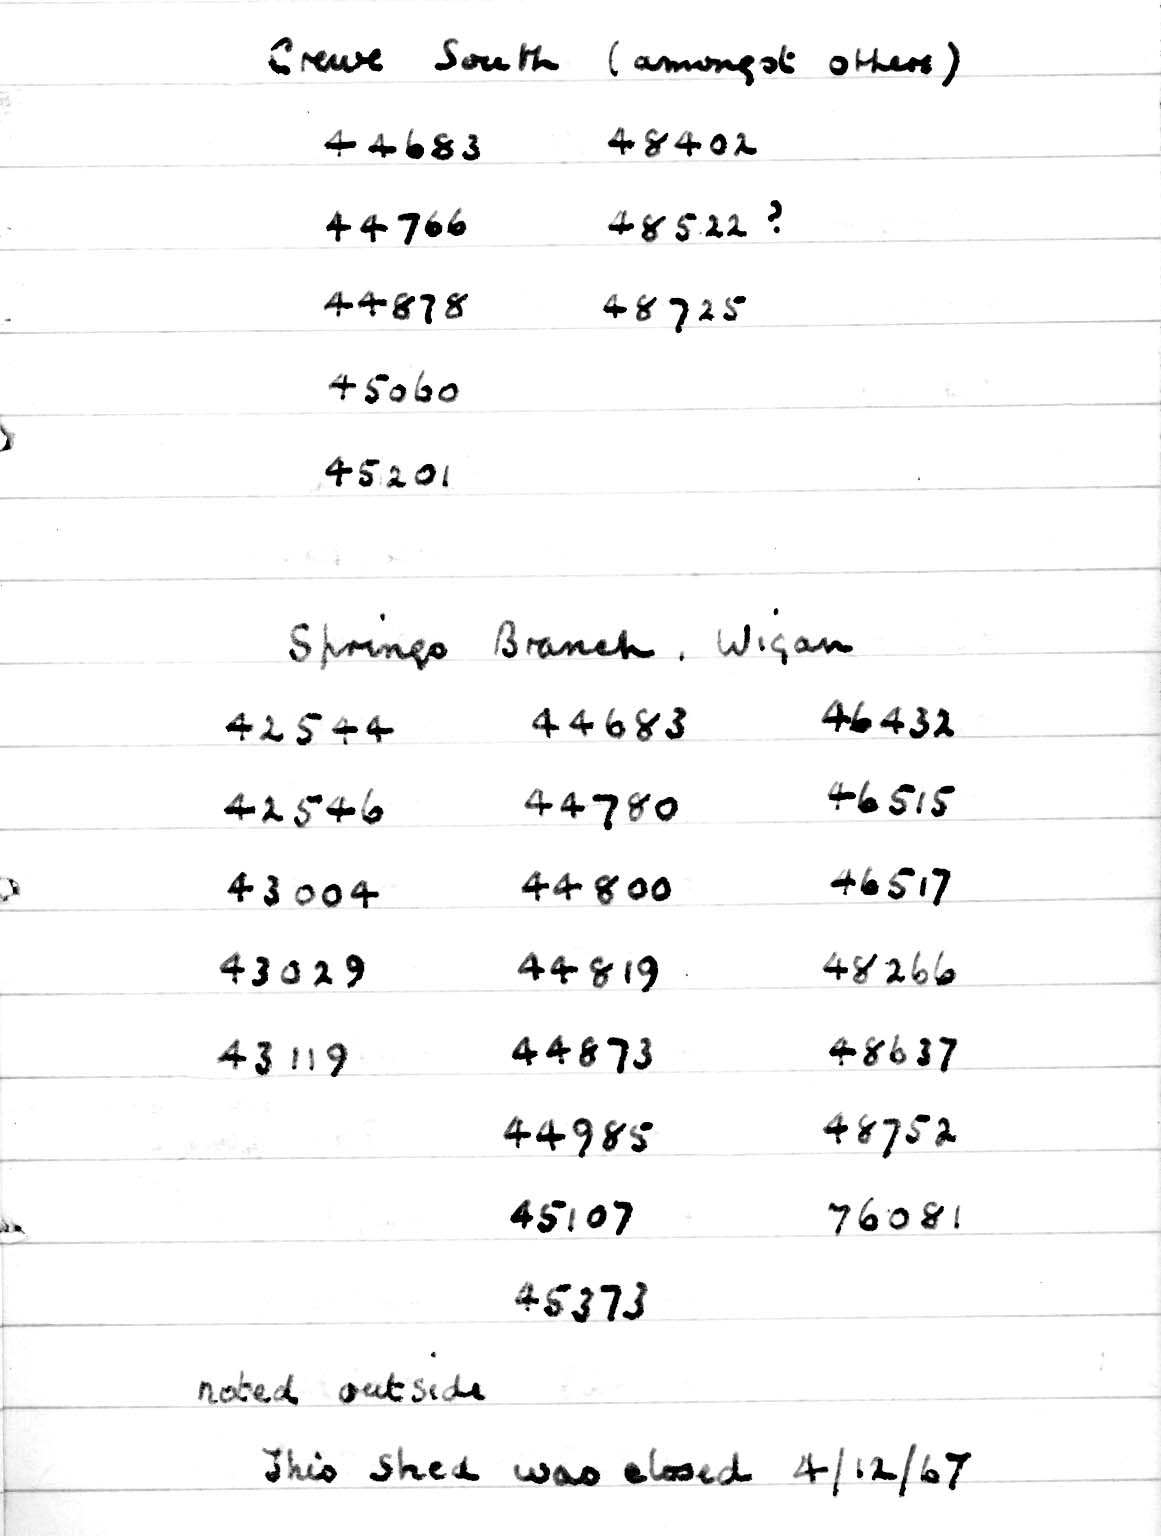 Crewe South (amongst others)
44683 48402
44766 48522?
44878 48725
45060
45201
Springs Branch, Wigan
42544 44683 46432
42546 44780 46515
43004 44800 46517
43029 44819 48266
43119 44873 48637
44985 48752
45107 76081
45373
noted outside
This shed was closed 4/12/67